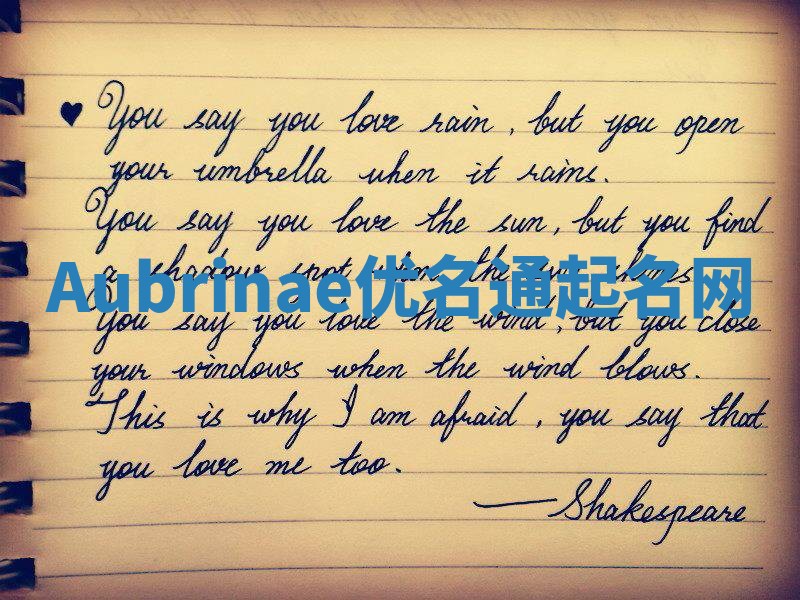 ♥ You say you love rain, but you open
your umbrella when it rains.
You say you love the sun, but you find
a shadow spot when the sun shines.
Aubrinae优名通起名网
You say you love the wind, but you close
your windows when the wind blows.
This is why I am afraid, you say that
you love me too.
—Shakespeare